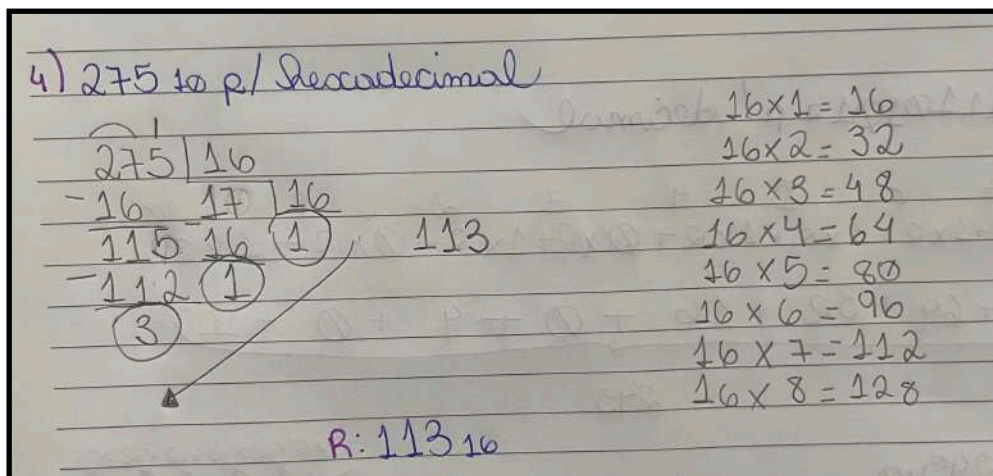 4) 275 10 p/ Hexadecimal
275 | 16
- 16 - 17 | 16
115 16 1
- 112 1
3
113
16 x 1 = 16
16 x 2 = 32
16 x 3 = 48
16 x 4 = 64
16 x 5 = 80
16 x 6 = 96
16 x 7 = 112
16 x 8 = 128
R: 113 16